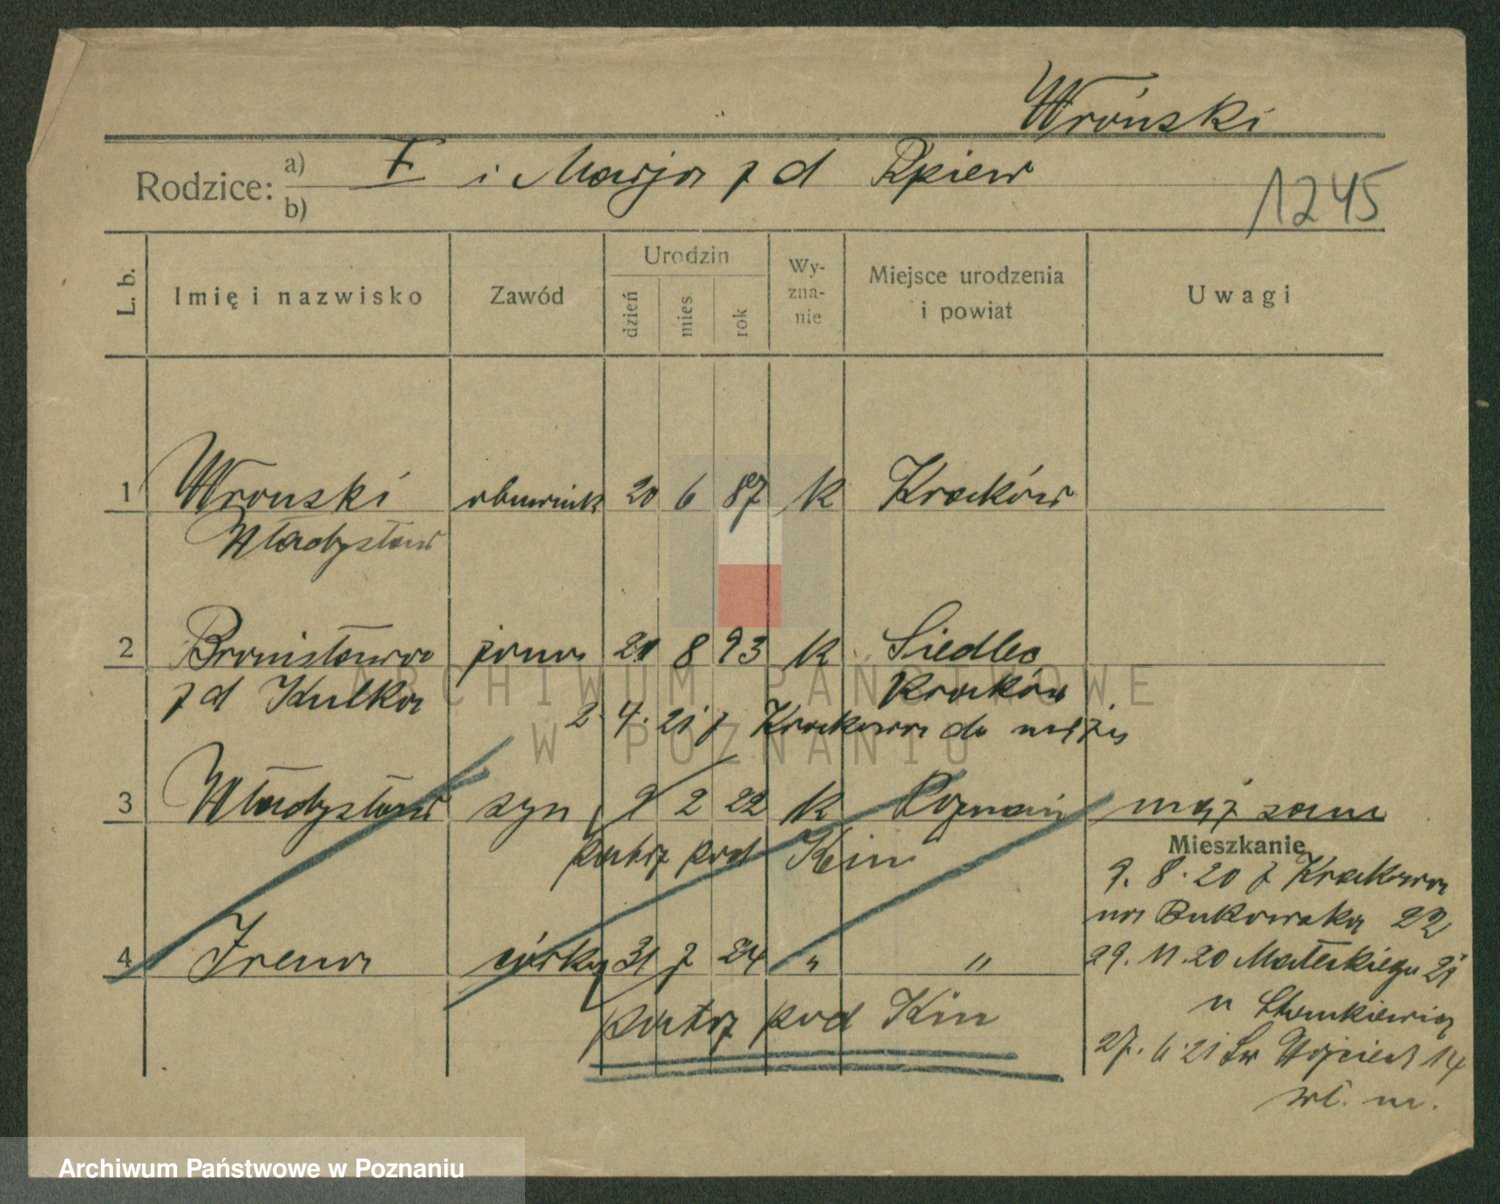 Wroński
Rodzice: a) F i Marja z d Rpiew
b)
1245
L. b. Imię i nazwisko Zawód Urodzin dzień mies. rok Wy-zna-nie Miejsce urodzenia i powiat Uwagi
1 Wronski obuwnik 20 6 87 k Kraków
Władysław
2 Bronisława żona 21 8 93 k Siedlec
z d Kulka Kraków
2. 4. 21 z Krakowa do męża
ARCHIWUM PAŃSTWOWE
W POZNANIU
3 Władysław syn 9 2 22 k Poznań mąż sam
patrz pod Kin
Mieszkanie
9. 8. 20 z Krakowa
na Bukowska 22
4 Irena córka 31 7 24 " "
29. 11. 20 Małeckiego 21
patrz pod Kin
u
27. 6. 21 Św Wojciech 14
wł. m.
Archiwum Państwowe w Poznaniu